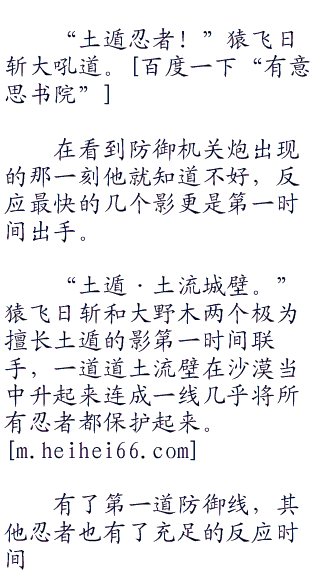 “土遁忍者！”猿飞日
斩大吼道。[百度一下“有意
思书院”]
在看到防御机关炮出现
的那一刻他就知道不好，反
应最快的几个影更是第一时
间出手。
“土遁·土流城壁。”
猿飞日斩和大野木两个极为
擅长土遁的影第一时间联
手，一道道土流壁在沙漠当
中升起来连成一线几乎将所
有忍者都保护起来。
[m.heihei66.com]
有了第一道防御线，其
他忍者也有了充足的反应时
间